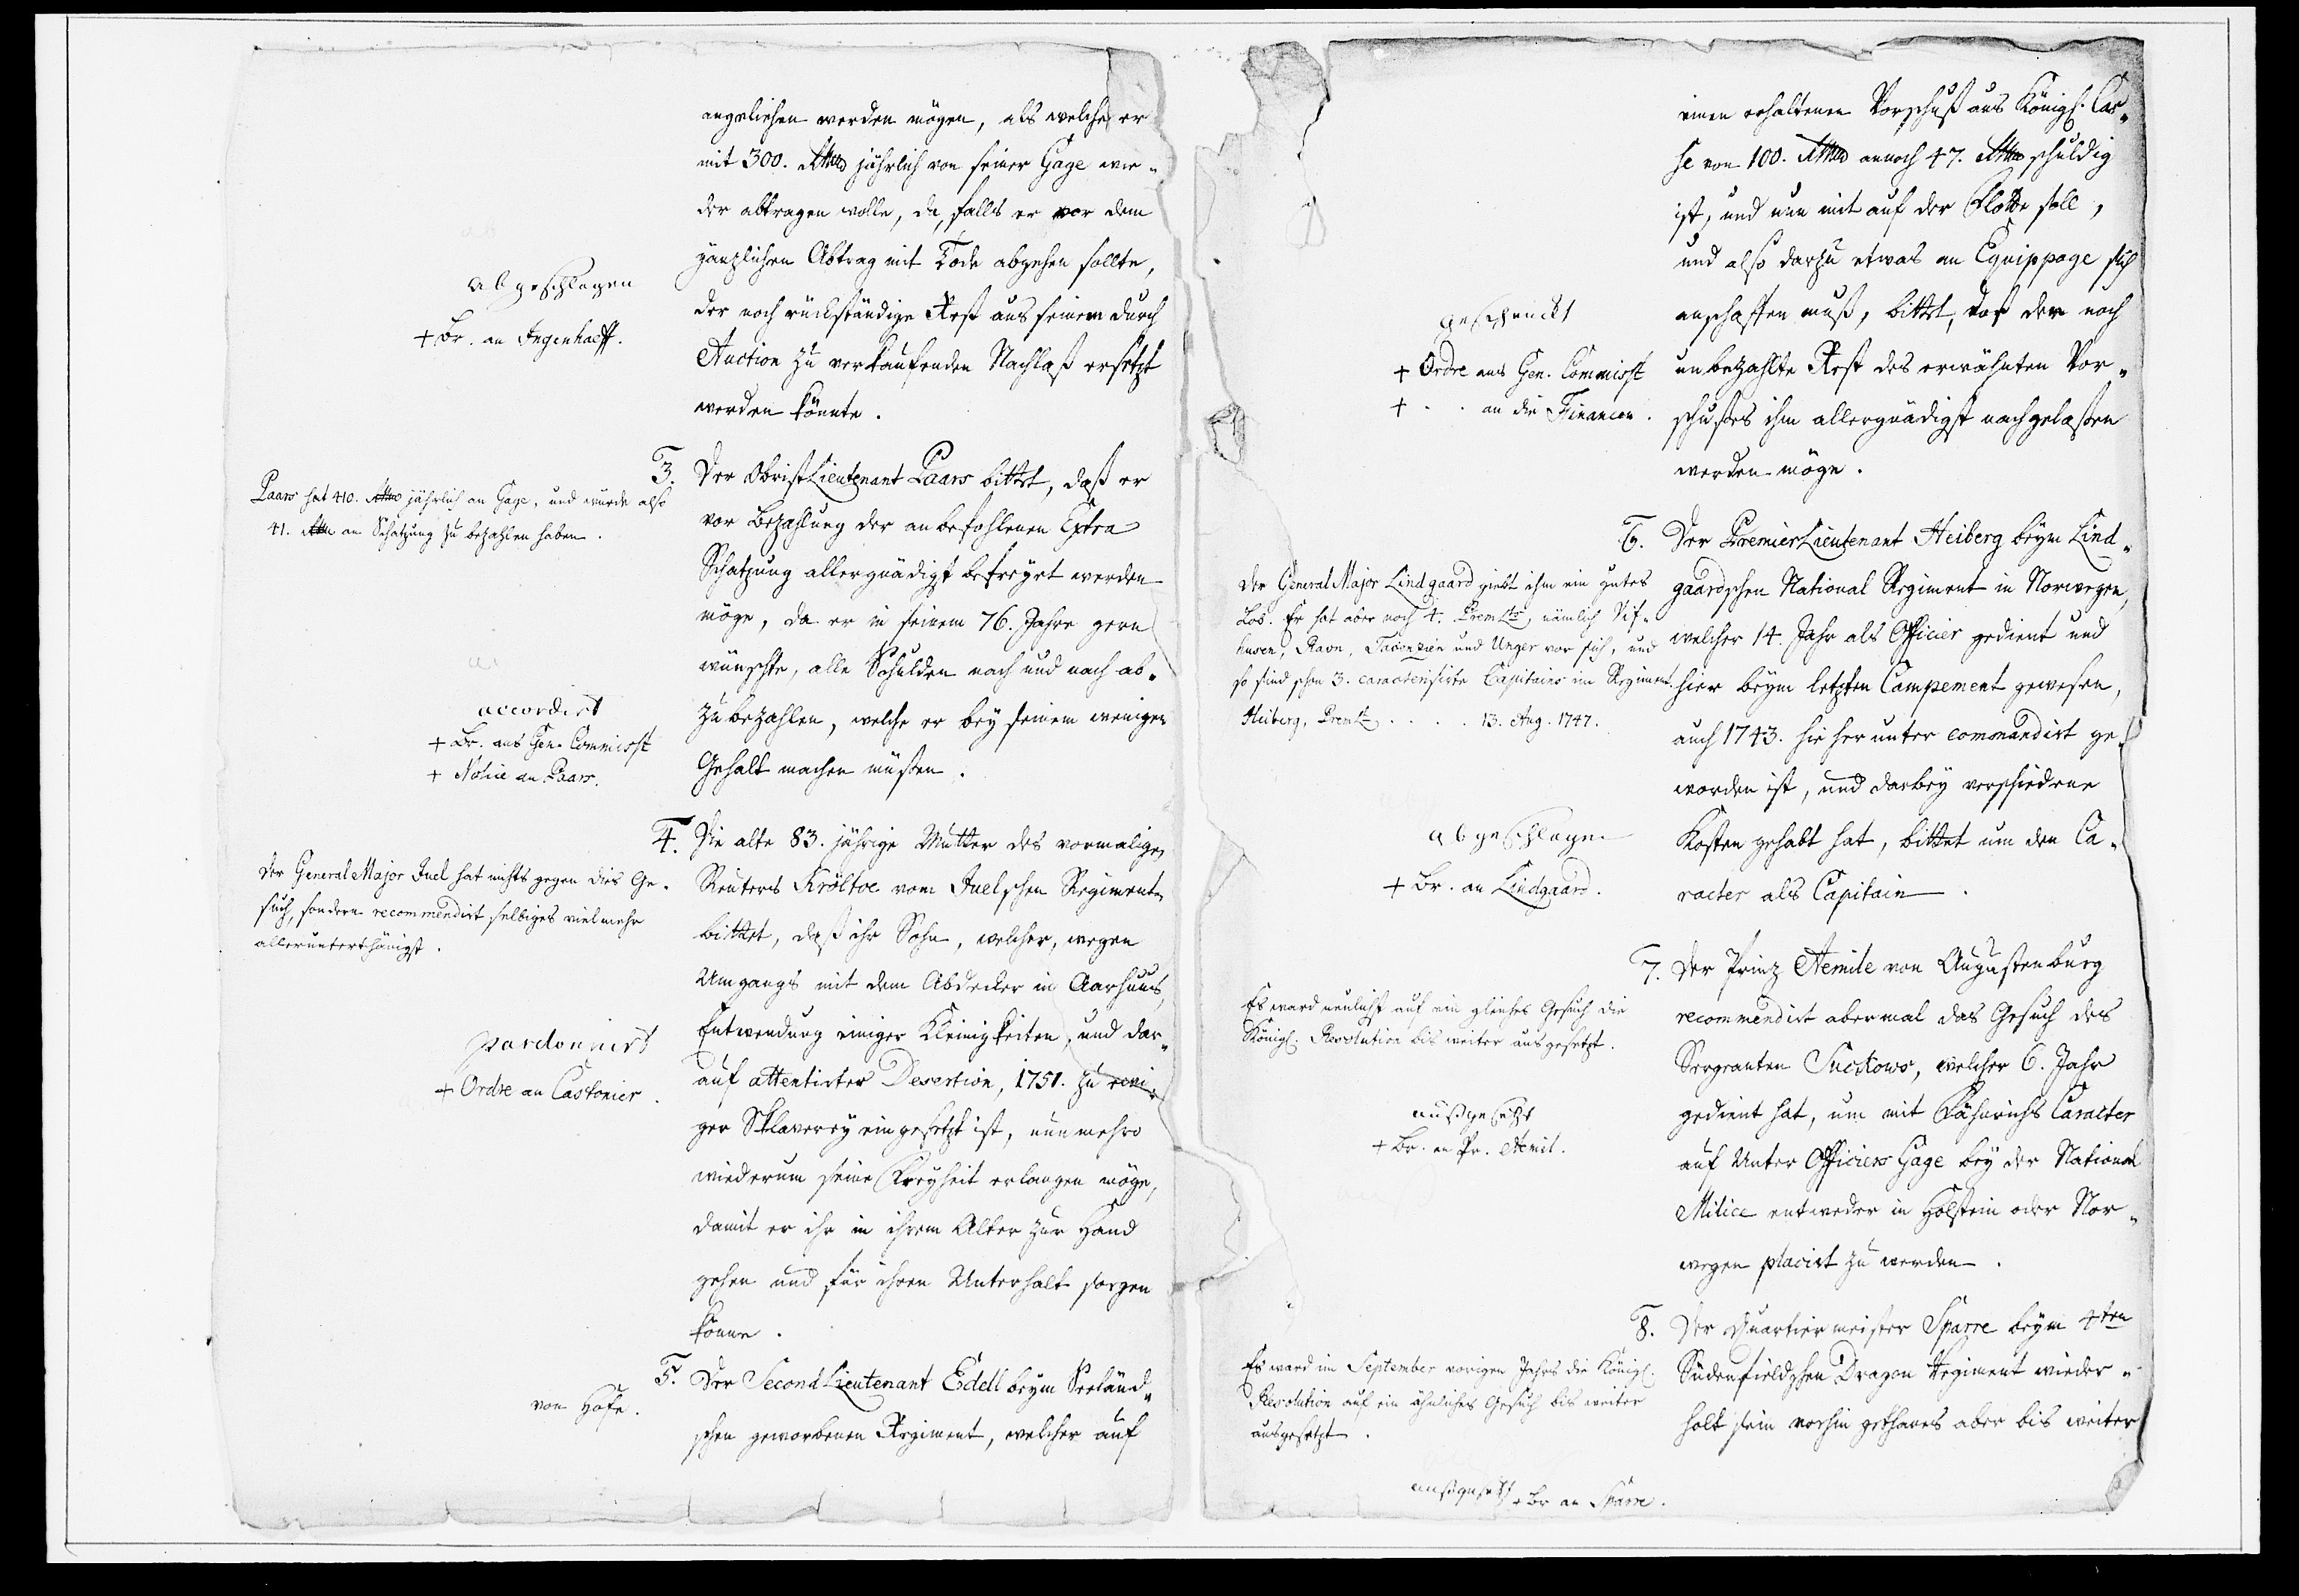 angeliehen werden mögen, als welche er
mit 300. Rthlr jährlich von seiner Gage wie-
der abtragen wolle, da, falls er vor dem
gänzlichen Abtrag mit Tode abgehen sollte,
der noch rückständige Rest aus seinem durch
Auction zu verkaufenden Nachlaß ersetzt
werden könnte.
abgeschlagen
+ Br. an Ingenhaeff.
3. Der ObristLieutenant Paars bittet, daß er
vor Bezahlung der anbefohlenen Extra
Schatzung allergnädigst befreyet werden
möge, da er in seinem 76. Jahre gern
wünschte, alle Schulden nach und nach ab-
zubezahlen, welche er bey seinem wenigen
Gehalt machen müßen.
Paars hat 410. Rthlr jährlich an Gage, und wurde also
41. Rthlr an Schatzung zu bezahlen haben.
accordirt
+ Br. ans Gen. Commisst
+ Notice an Paars.
4. Die alte 83. jährige Mutter des vormaligen
Reuters Kröltoe vom Juelschen Regimente
bittet, daß ihr Sohn, welcher, wegen
Umgangs mit dem Abdecker in Aarhuus,
Entwendung einiger Kleinigkeiten, und dar-
auf attentirter Desertion, 1751. zu ewi-
ger Sklaverey eingesetzt ist, nunmehro
wiederum seine Freyheit erlangen möge,
damit er ihr in ihrem Alter zur Hand
gehen und für ihren Unterhalt sorgen
könne.
Der General Major Juel hat nichts gegen dies Ge-
such, sondern recommendirt selbiges vielmehr
allerunterthänigst.
pardonnirt
+ Ordre an Castonier.
5. Der SecondLieutenant Edell beym Seeländ-
schen geworbenen Regiment, welcher auf
von Hofe.
einen erhaltenen Vorschuß aus Königl. Cas-
se von 100. Rthlr annoch 47. Rthlr schuldig
ist, und nun mit auf der Flotte soll,
und also darzu etwas an Equippage sich
anschaffen muß, bittet, daß der noch
unbezahlte Rest des erwähnten Vor-
schußes ihm allergnädigst nachgelaßen
werden möge.
geschenckt
+ Ordre ans Gen. Commisst
+ . . an die Financen.
6. Der PremierLieutenant Heiberg beym Lind-
gaardschen National Regiment in Norwegen,
welcher 14. Jahr als Officier gedient und
hier beym letzten Campement gewesen,
auch 1743. hieherunter commandirt ge-
worden ist, und darbey verschiedene
Kosten gehabt hat, bittet um den Ca-
racter als Capitain.
Der General Major Lindgaard giebt ihm ein gutes
Lob. Er hat aber noch 4. Prem Lts, nämlich Vif-
husen, Ravn, und Unger vor sich, und
so sind schon 3. caracterisirte Capitains im Regiment.
Heiberg, Prem Lt . . . . 13. Aug. 1747.
abgeschlagen
+ Br. an Lindgaard.
7. Der Prinz Aemile von Augustenburg
recommendirt abermal das Gesuch des
Sergeanten Suckows, welcher 6. Jahr
gedient hat, um mit Fähnrichs Caracter
auf Unter Officiers Gage bey der National
Milice entweder in Holstein oder Nor-
wegen placirt zu werden.
Es ward neulichst auf ein gleiches Gesuch die
Königl. Resolution bis weiter ausgesetzt.
außgesetzt
+ Br. an Pr. Aemil.
8. Der Quartiermeister Sparre beym 4ten
Südenfieldschen Dragon Regiment wieder-
holt sein vorhin gethanes aber bis weiter
Es ward im September vorigen Jahrs die Königl.
Resolution auf ein ähnliches Gesuch bis weiter
ausgesetzt.
außgesetzt + Br an Sparre.